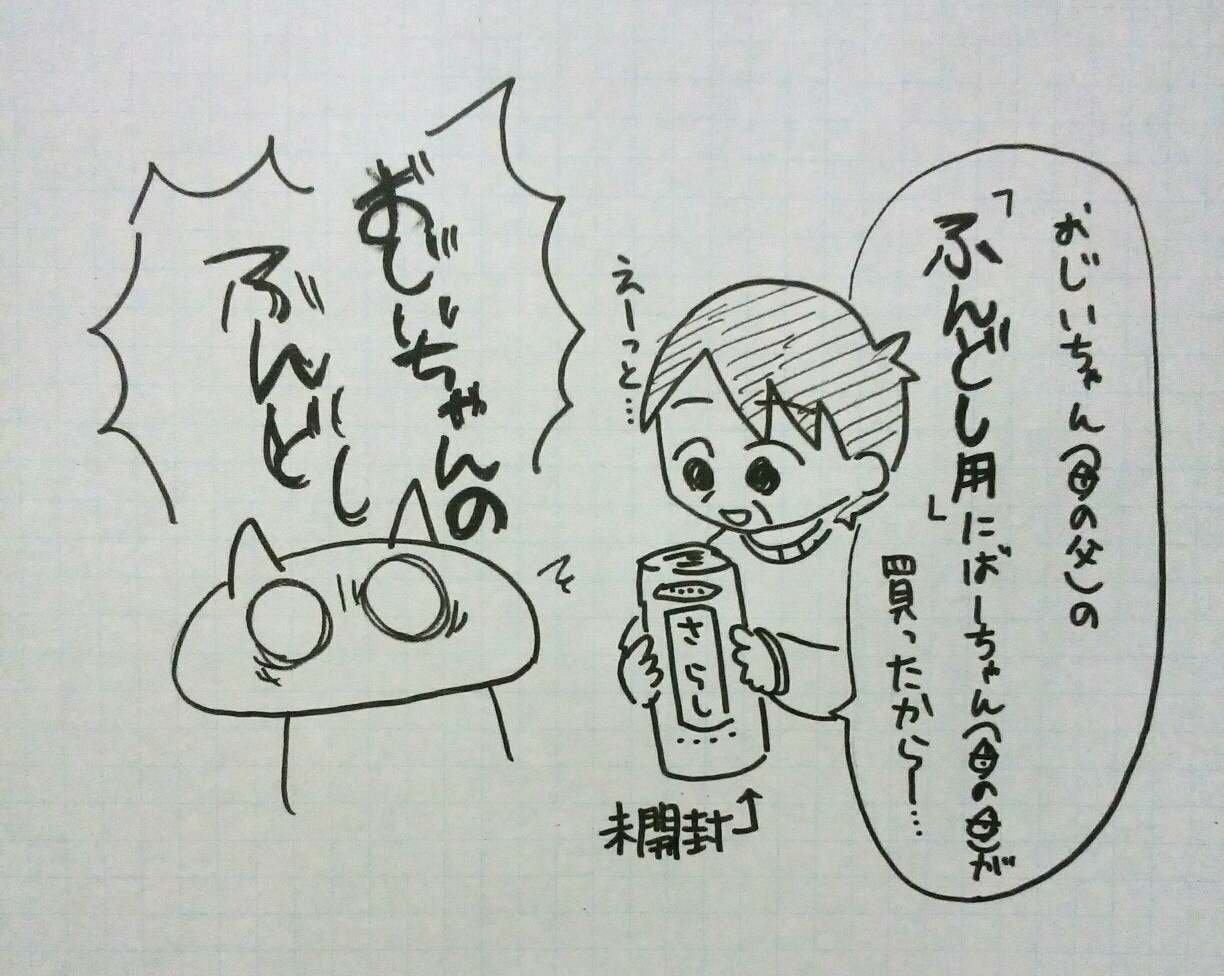 おじいちゃん(母の父)の
「ふんどし用」にばーちゃん(母の母)が
買ったから〜…
えーっと…
さらし
未開封
おじいちゃんの
ふんどし